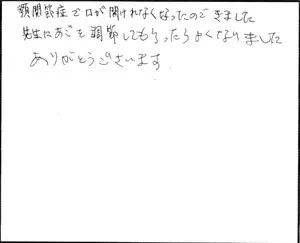 顎関節症で口が開けれなくなったので きました
先生にあごを調節してもらったらよくなりました
ありがとうございます